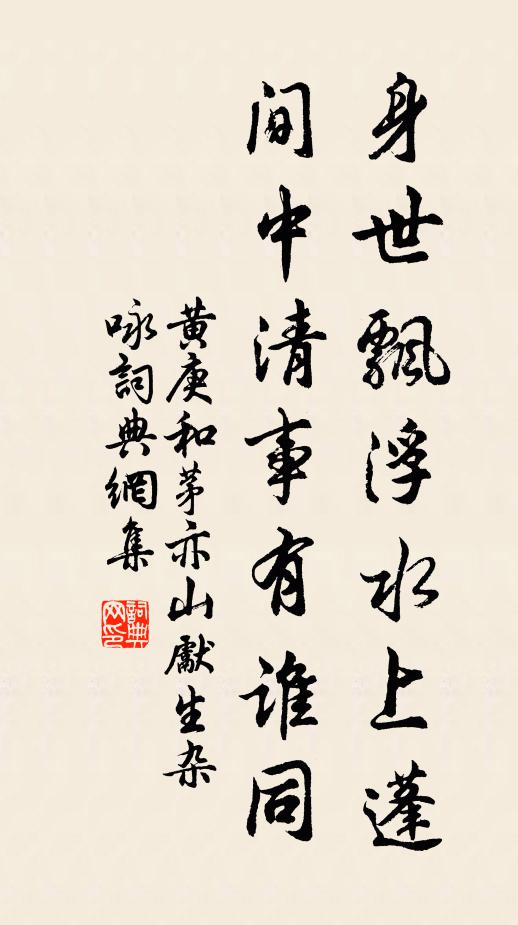 身世飄浮水上蓬
間中清事有誰同
黄庚和茅亦山獻生杂
咏詞典網集
詞典
网印